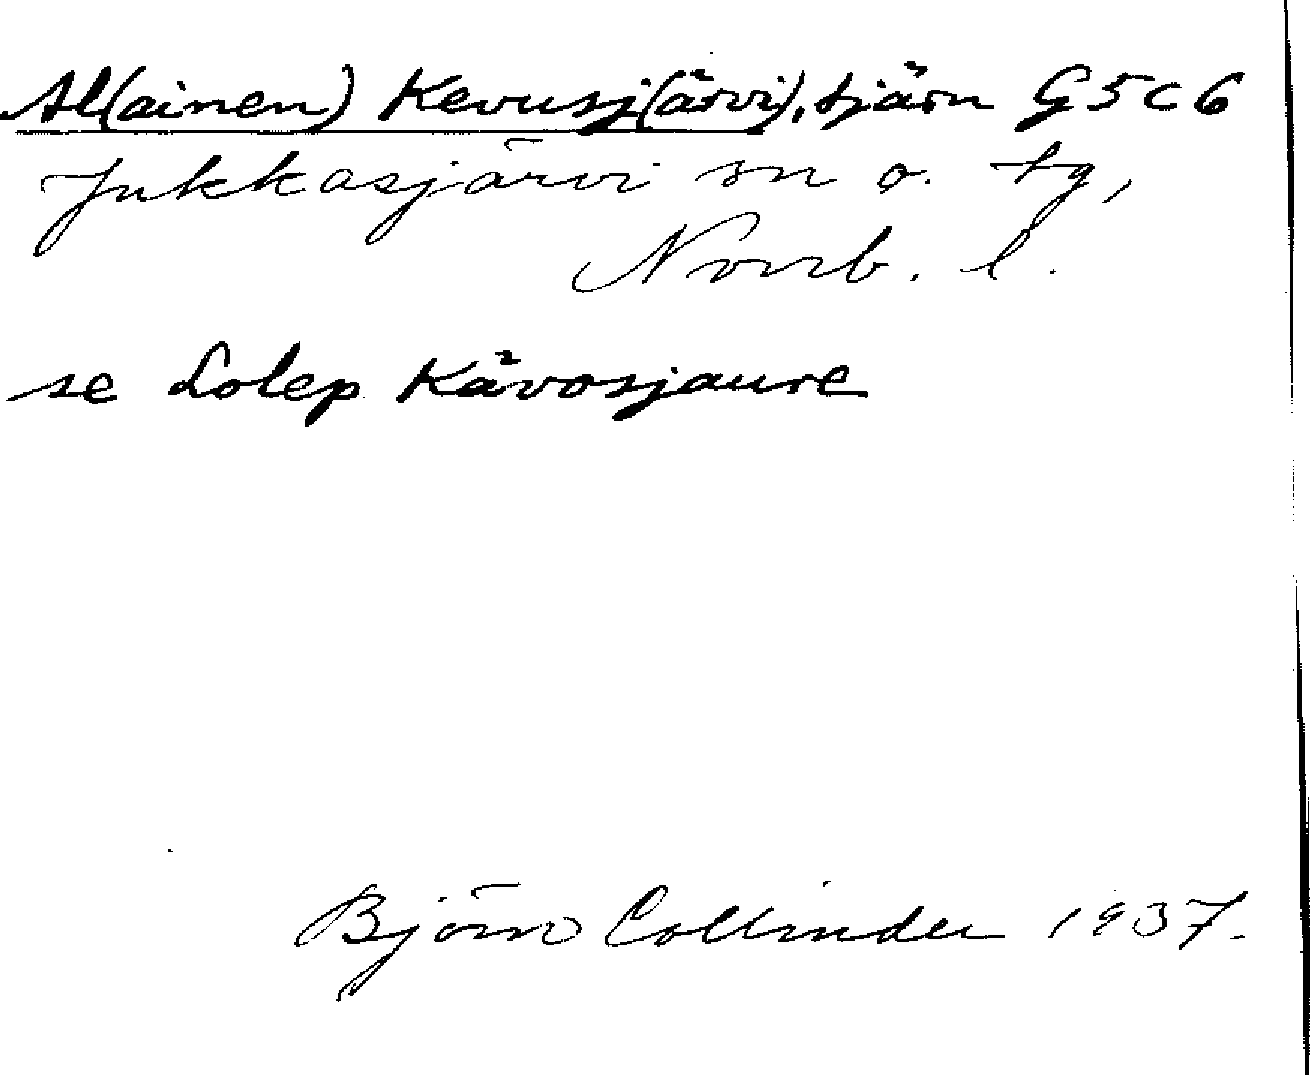 Al(ainen) Kevusj(ärvi), tjärn G5c6
Jukkasjärvi sn o. tg,
Norrb. l.
se Lolep Kävosjaure
Björn Collinder 1937.